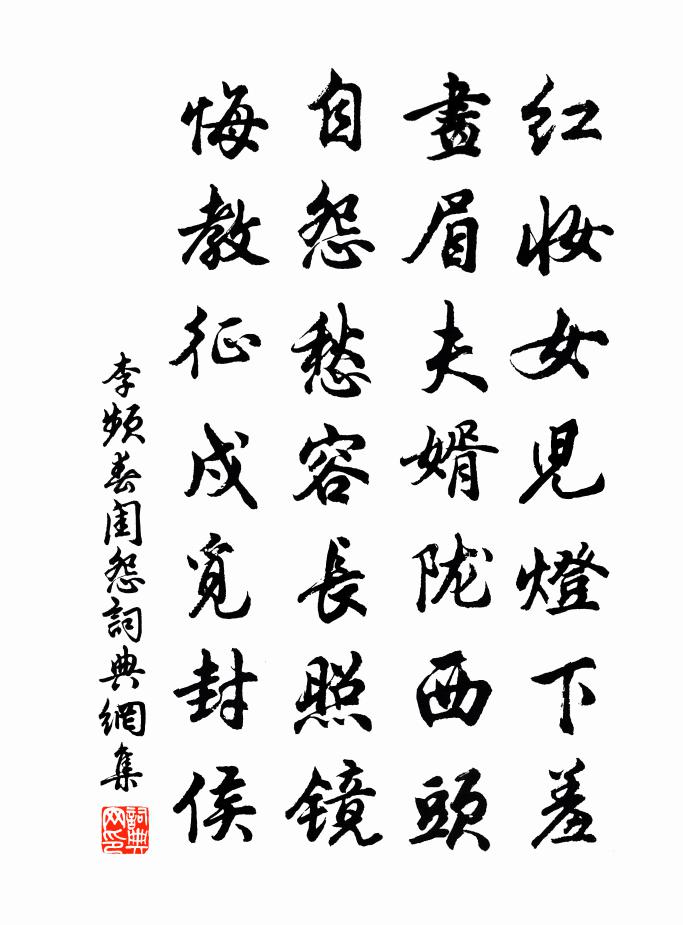 红妆女児燈下羞
畫眉夫婿陇西頭
自怨愁容長照镜
悔教征戍覓封侯
李频春闺怨詞典網集
詞典网印